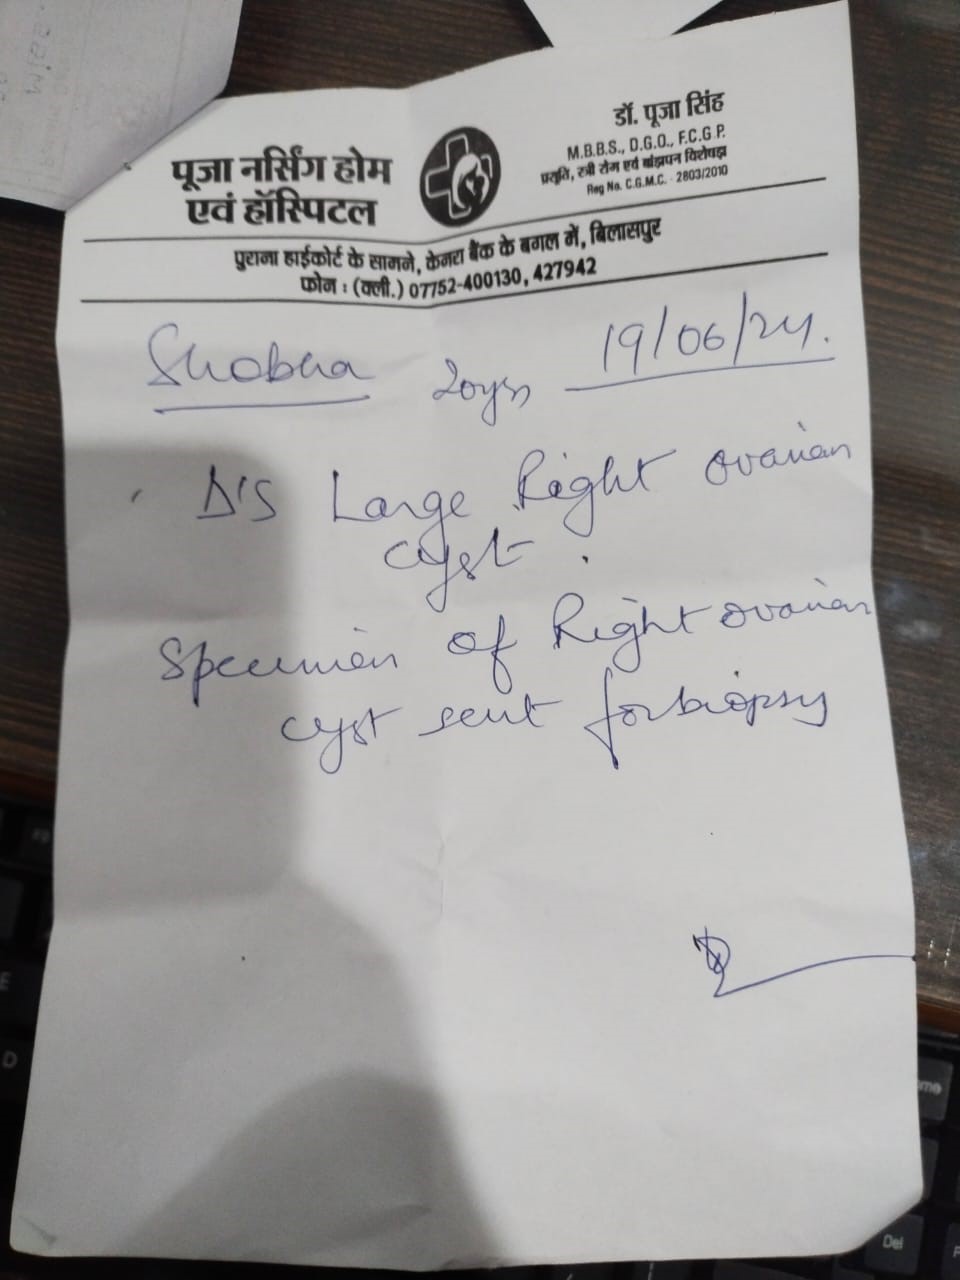 पूजा नर्सिंग होम
एवं हॉस्पिटल
डॉ. पूजा सिंह
M.B.B.S., D.G.O., F.C.G.P.
प्रसूति, स्त्री रोग एवं बांझपन विशेषज्ञ
Reg No. C.G.M.C. - 2803/2010
पुराना हाईकोर्ट के सामने, केनरा बैंक के बगल में, बिलासपुर
फोन : (क्ली.) 07752-400130, 427942
Shobha 20yrs 19/06/24.
D'S Large Right ovarian
cyst.
Specimen of Right ovarian
cyst sent for biopsy
E
D
Del